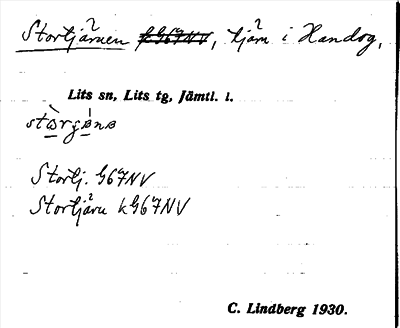 Stortjärnen kG67NV, tjärn i Handog,
Lits sn, Lits tg, Jämtl. l.
Stortj. G67NV
Stortjärn kG67NV
C. Lindberg 1930.